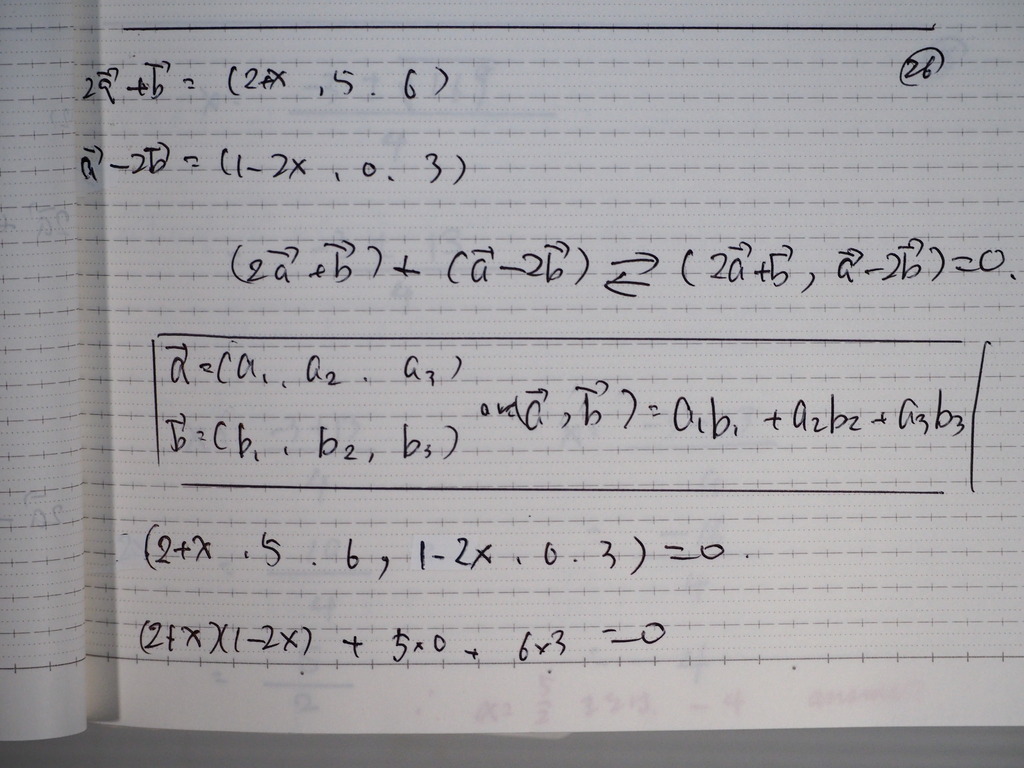 ㉖
2a⃗ + b⃗ = (2+x , 5 . 6)
a⃗ - 2b⃗ = (1-2x , 0 . 3)
(2a⃗ + b⃗) + (a⃗ - 2b⃗) ⇄ (2a⃗ + b⃗ , a⃗ - 2b⃗) = 0.
a⃗ = (a₁ , a₂ . a₃)
b⃗ = (b₁ , b₂ , b₃)
(a⃗ , b⃗) = a₁b₁ + a₂b₂ + a₃b₃
(2+x . 5 . 6 , 1-2x , 0 . 3) = 0.
(2+x)(1-2x) + 5×0 + 6×3 = 0